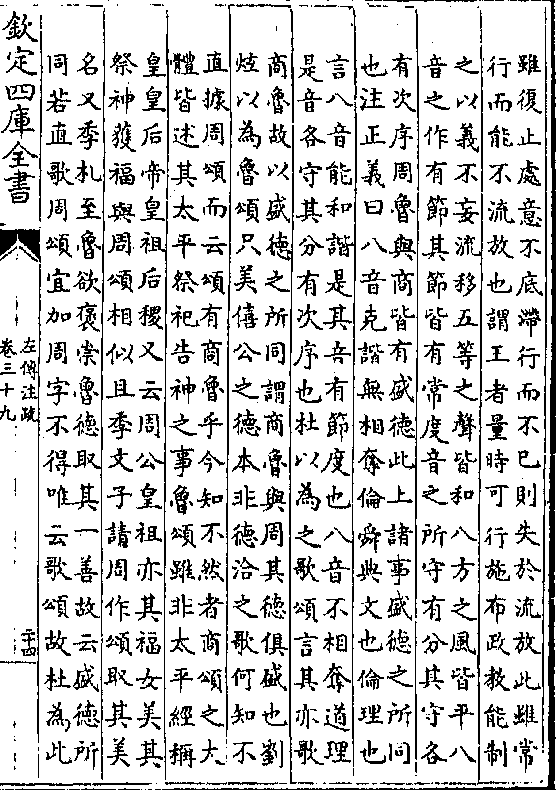 雖復止處意不底滯行而不已則失於流放此雖常
行而能不流放也謂王者量時可行施布政教能制
之以義不妄流移五等之聲皆和八方之風皆平八
音之作有節其節皆有常度音之所守有分其守各
有次序周魯與商皆有盛德此上諸事盛德之所同
也注正義曰八音克諧無相奪倫舜典文也倫理也
言八音能和諧是其音有節度也八音不相奪道理
是音各守其分有次序也杜以為之歌頌言其亦歌
商魯故以盛德之所同謂商魯與周其德俱盛也劉
炫以為魯頌只美僖公之德本非德洽之歌何知不
直據周頌而云頌有商魯乎今知不然者商頌之大
體皆述其太平祭祀告神之事魯頌雖非太平經稱
皇皇后帝皇祖后稷又云周公皇祖亦其福女美其
祭神獲福與周頌相似且季文子請周作頌取其美
名又季札至魯欲褒崇魯德取其一善故云盛德所
同若直歌周頌宜加周字不得唯云歌頌故杜為此
欽定四庫全書
左傳注疏
卷三十九
二十四